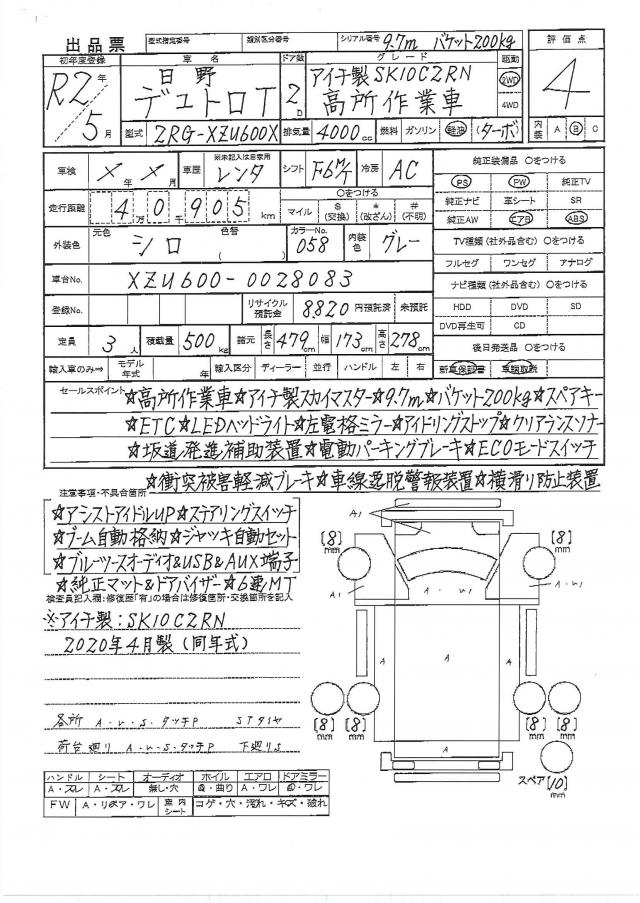 出品票 型式指定番号 類別区分番号 シリアル番号 9.7m バケット200kg
評価点 4
初年度登録 車名 ドア数 グレード 駆動
R2年/5月 日野 デュトロT 2D アイチ製SK10C2RN 高所作業車 2WD 4WD
型式 2RG-XZU600X 排気量 4000cc 燃料 ガソリン 軽油 (ターボ) 内装 A B C
車検 ×年×月 車歴 ※未記入は自家用 レンタ シフト F6MT 冷房 AC
純正装備品 ○をつける
PS PW 純正TV
純正ナビ 車シート SR
純正AW エアB ABS
走行距離 4万0千905km ○をつける マイル $(交換) *(改ざん) #(不明)
外装色 元色 シロ 色替 ( ) カラーNo. 058 内装色 グレー
TV種類(社外品含む) ○をつける
フルセグ ワンセグ アナログ
車台No. XZU600-0028083
ナビ種類(社外品含む) ○をつける
登録No. リサイクル預託金 8,820円預託済 未預託
HDD DVD SD
DVD再生可 CD
定員 3人 積載量 500kg 諸元 長さ 479cm 幅 173cm 高さ 278cm
後日発送品 ○をつける
輸入車のみ⇒ モデル年式 年 輸入区分 ディーラー 並行 ハンドル 左 右
新車保証書 車輌取説
セールスポイント ☆高所作業車☆アイチ製スカイマスター☆9.7m☆バケット200kg☆スペアキー
☆ETC☆LEDヘッドライト☆左電格ミラー☆アイドリングストップ☆クリアランスソナー
☆坂道発進補助装置☆電動パーキングブレーキ☆ECOモードスイッチ
☆衝突被害軽減ブレーキ☆車線逸脱警報装置☆横滑り防止装置
注意事項・不具合箇所
☆アシストアイドルUP☆ステアリングスイッチ
☆ブーム自動格納☆ジャッキ自動セット
☆ブルーツースオーディオ&USB&AUX端子
☆純正マット&ドアバイザー☆6速MT
検査員記入欄:修復歴「有」の場合は修復箇所・交換箇所を記入
※アイチ製:SK10C2RN
2020年4月製(同年式)
各所 A・U・S・タッチP STタイヤ
荷台廻り A・U・S・タッチP 下廻りS
A1
[8]mm [8]mm
A1 A・U1 A・U1
A A A
[8]mm [8]mm [8]mm [8]mm
A
スペア[10]mm
ハンドル シート オーディオ ホイル エアロ ドアミラー
A・スレ A・スレ 無し・穴 曲り A・ワレ ワレ
FW A・リペア・ワレ 車内シート コゲ・穴・汚れ・キズ・破れ